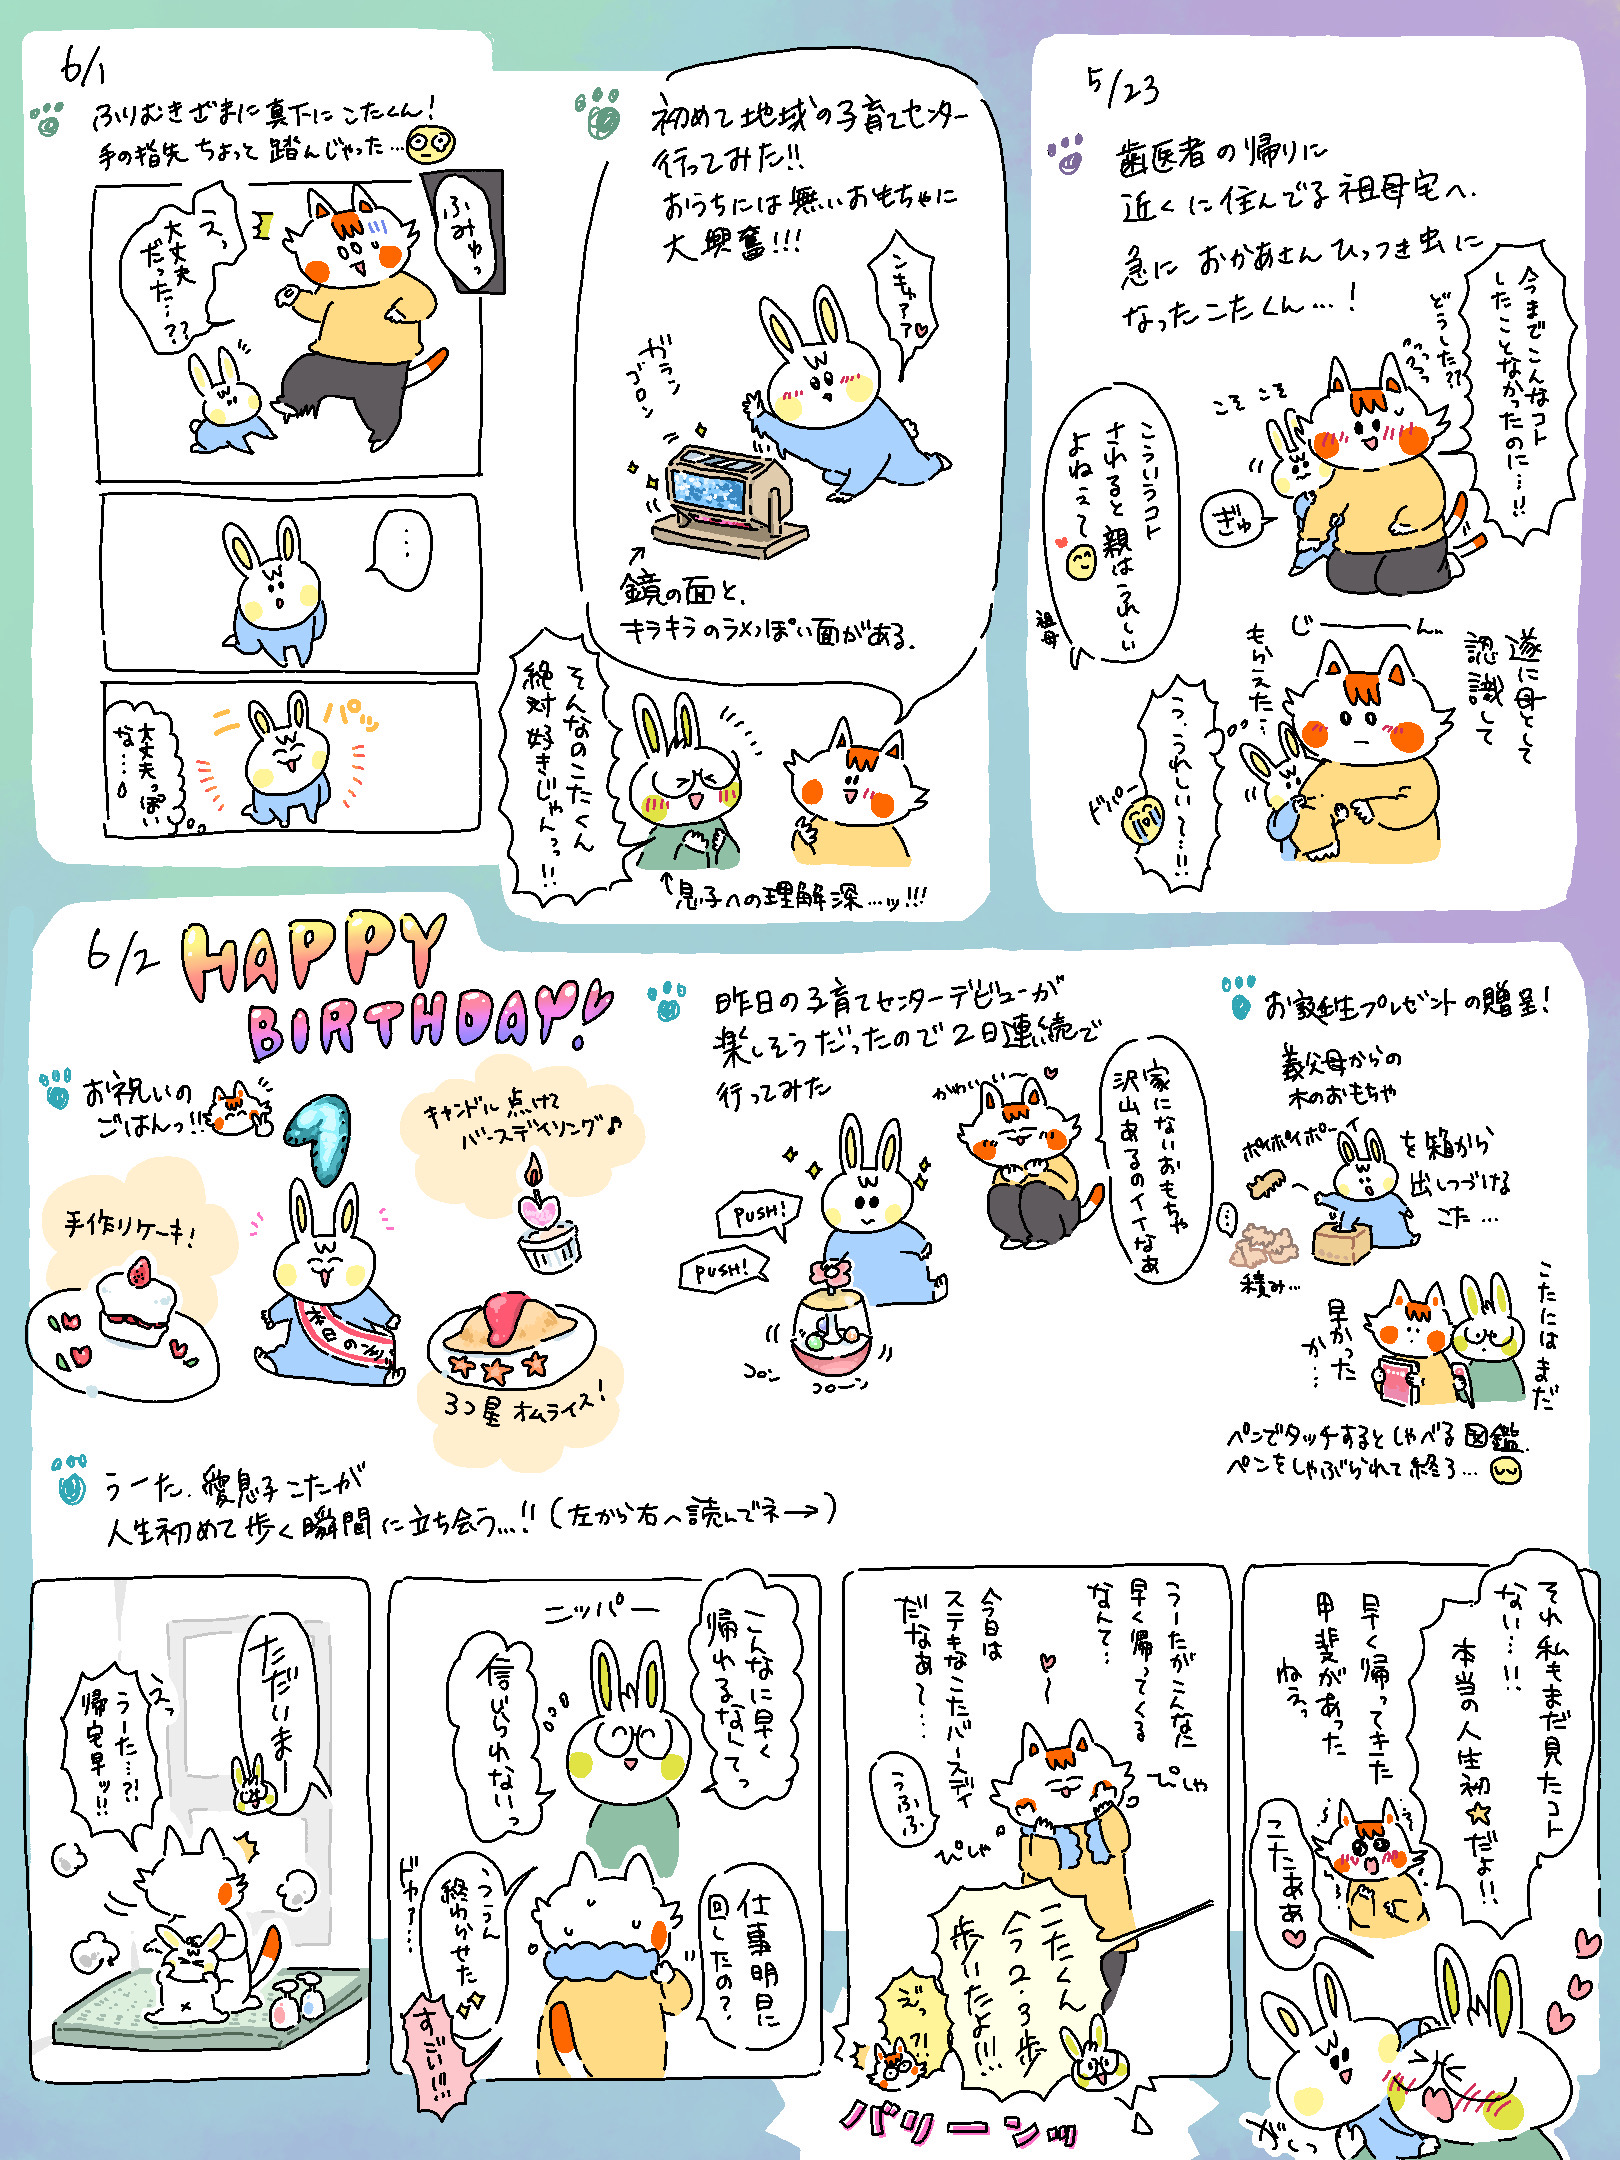 6/1
ふりむきざまに真下にこたくん!
手の指先ちょって踏んじゃった…
ふみゅっ
えっ
大丈夫
だった…??
…
ニパッ
大丈夫っぽい
な…。
初めて地域の子育てセンター
行ってみた!!
おうちには無いおもちゃに
大興奮!!!
ンキャアア♡
ガラン
ゴロン
鏡の面と、
キラキラのラメっぽい面がある。
そんなのこたくん
絶対好きじゃんっっ!!
↑息子への理解深…ッ!!!
5/23
歯医者の帰りに
近くに住んでる祖母宅へ。
急におかあさんひっつき虫に
なったこたくん…!
今までこんなコト
したことなかったのに…!!
どうした??
こそこそ
ぎゅ
こういうコト
されると親はうれしい
よねぇ
祖母
じーーん…
遂に母として
認識して
もらえた…
うっうれしい〜…!!
ドバー
6/2
HAPPY
BIRTHDAY!
お祝いの
ごはんっ!!
手作りケーキ!
1
本日の主役
キャンドル点けて
バースデイソング♪
3つ星オムライス!
昨日の子育てセンターデビューが
楽しそうだったので2日連続で
行ってみた
かわいい〜♡
家にないおもちゃ
沢山あるのイイなぁ
PUSH!
PUSH!
コロン
コローン
お誕生プレゼントの贈呈!
義父母からの
木のおもちゃ
ポイポイポーイ
を箱から
出しつづける
こた…
…
積み…
こたにはまだ
早かった
か…
ペンでタッチするとしゃべる図鑑。
ペンをしゃぶられて終る…
うーた、愛息子こたが
人生初めて歩く瞬間に立ち会う…!!(左から右へ読んでネ→)
ただいまー
えっ
うーた…?!
帰宅早ッ!!
こんなに早く
帰れるなんてっ
ニッパー
信じられないっ
仕事明日に
回したの?
ううん
終わらせた
ドヤ…
すごい!!!
うーたがこんなに
早く帰ってくる
なんて…
今日は
ステキなこたバースディ
だなぁ〜…
うふふ
ぴしゃ
ぴしゃ
こたくん
今2・3歩
歩いたよ!!!
えっ?!
バリーンッ
それ私もまだ見たコト
ない…!!
本当の人生初☆だよ!!
早く帰ってきた
甲斐があった
ねぇっ
こたあぁ♡
がしっ